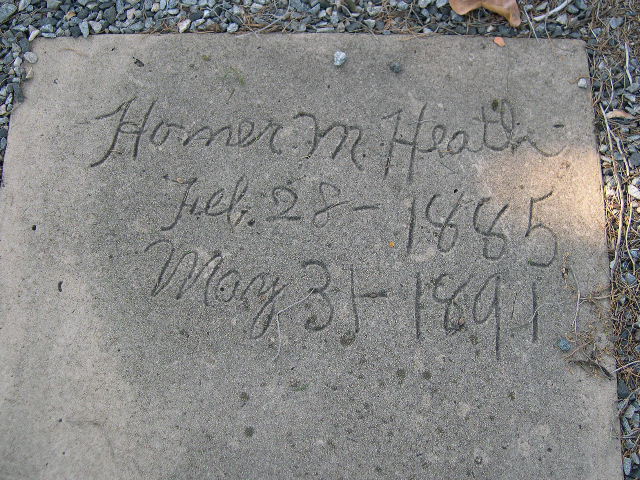 Homer M Heath
Feb. 28 - 1885
May 31 - 1891